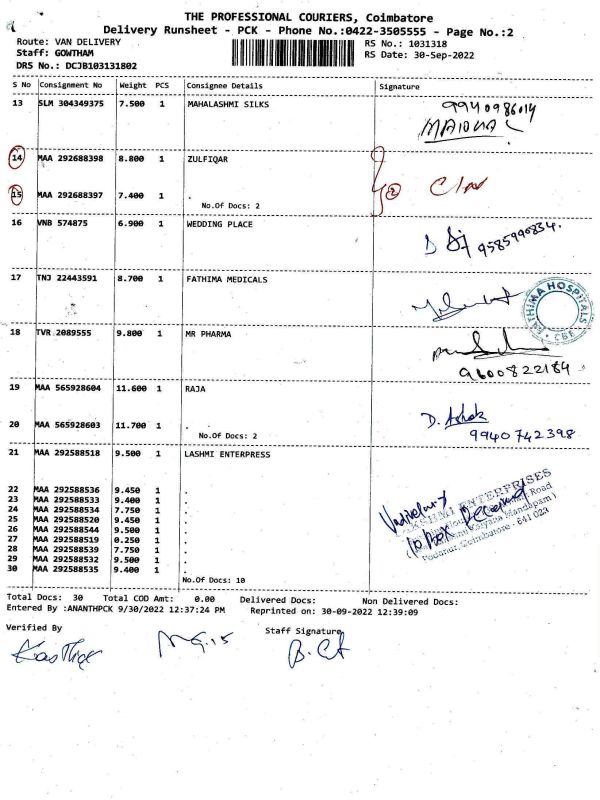 THE PROFESSIONAL COURIERS, Coimbatore
Delivery Runsheet - PCK - Phone No.:0422-3505555 - Page No.:2
Route: VAN DELIVERY RS No.: 1031318
Staff: GOWTHAM RS Date: 30-Sep-2022
DRS No.: DCJB103131802
S No Consignment No Weight PCS Consignee Details Signature
13 SLM 304349375 7.500 1 MAHALASHMI SILKS 9940986014
14 MAA 292688398 8.800 1 ZULFIQAR
15 MAA 292688397 7.400 1 .
No.Of Docs: 2
16 VNB 574875 6.900 1 WEDDING PLACE
9585990834.
17 TNJ 22443591 8.700 1 FATHIMA MEDICALS
FATHIMA HOSPITALS CBE
18 TVR 2089555 9.800 1 MR PHARMA
9600822184
19 MAA 565928604 11.600 1 RAJA
D. Ashok
20 MAA 565928603 11.700 1 .
No.Of Docs: 2 9940742398
21 MAA 292588518 9.500 1 LASHMI ENTERPRESS
22 MAA 292588536 9.450 1 .
23 MAA 292588533 9.400 1 .
24 MAA 292588534 7.750 1 .
25 MAA 292588520 9.450 1 .
26 MAA 292588544 9.500 1 .
27 MAA 292588519 0.250 1 .
28 MAA 292588539 7.750 1 .
29 MAA 292588532 9.500 1 .
30 MAA 292588535 9.400 1 .
No.Of Docs: 10
LAKSHMI ENTERPRISES
Road
Kalyana Mandapam)
Podanur, Coimbatore - 641 023
10 Box Received
Total Docs: 30 Total COD Amt: 0.00 Delivered Docs: Non Delivered Docs:
Entered By :ANANTHPCK 9/30/2022 12:37:24 PM Reprinted on: 30-09-2022 12:39:09
Verified By Staff Signature